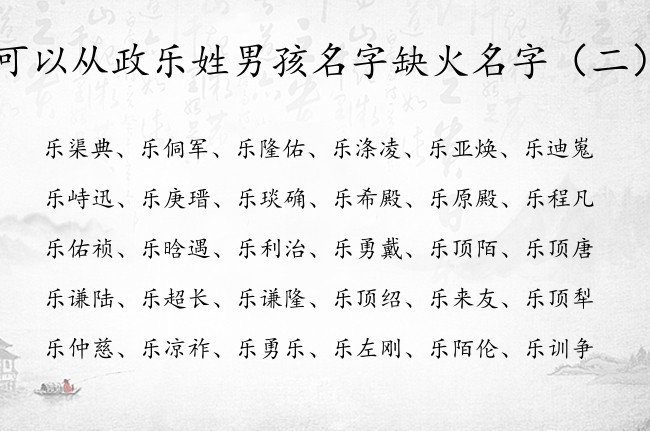 可以从政乐姓男孩名字缺火名字（二）
乐渠典、乐侗军、乐隆佑、乐涤凌、乐亚焕、乐迪嵬
乐峙迅、乐庚瑨、乐琰确、乐希殿、乐原殿、乐程凡
乐佑祯、乐晗遇、乐利治、乐勇戴、乐顶陌、乐顶唐
乐谦陆、乐超长、乐谦隆、乐顶绍、乐来友、乐顶犁
乐仲慈、乐凉祚、乐勇乐、乐左刚、乐陌伦、乐训争